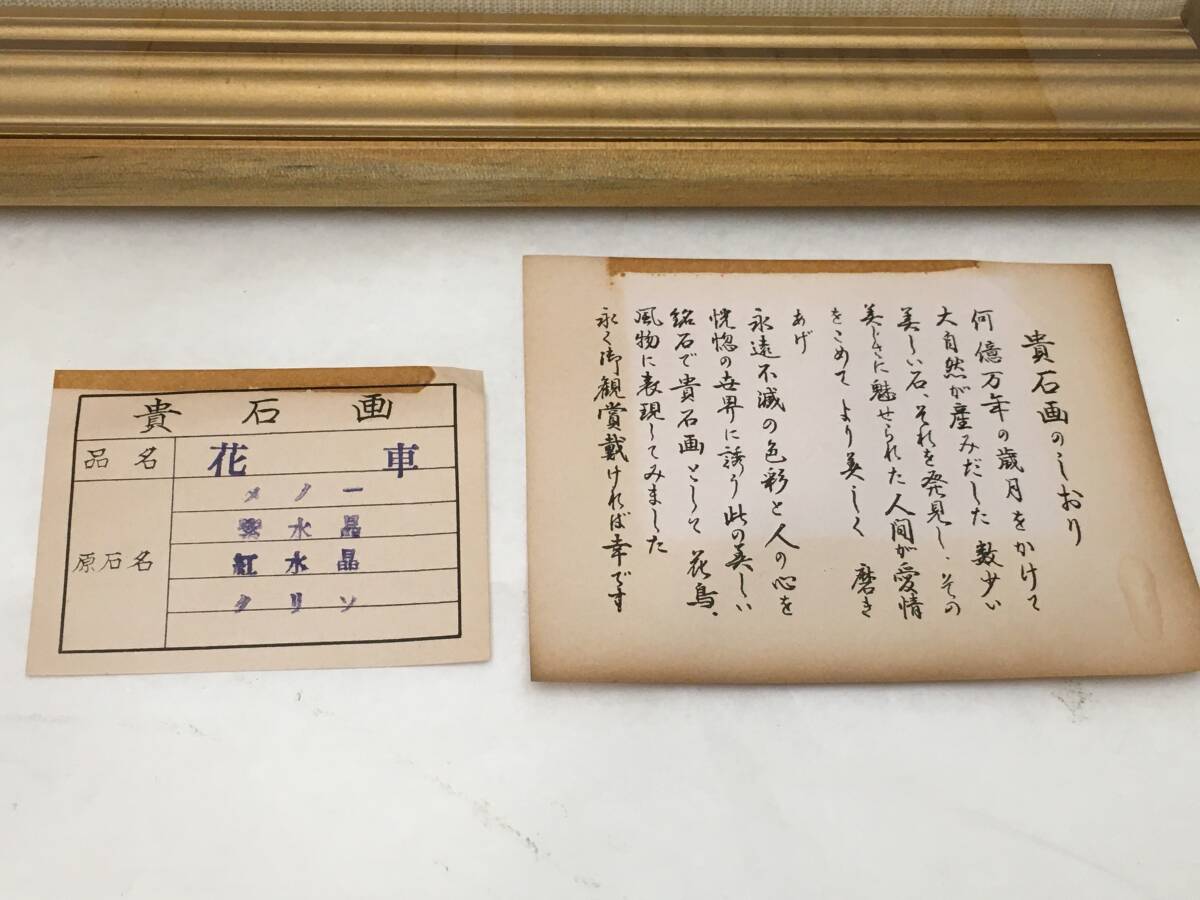 貴石画
品名 花車
原石名
メノー
紫水晶
紅水晶
クリソ
貴石画のしおり
何億万年の歳月をかけて
大自然が産みだした 数少い
美しい石、それを発見し、その
美しさに魅せられた人間が愛情
をこめて より美しく 磨き
あげ
永遠不滅の色彩と人の心を
恍惚の世界に誘う此の美しい
銘石で貴石画として 花鳥、
風物に表現してみました
永く御観賞戴ければ幸です